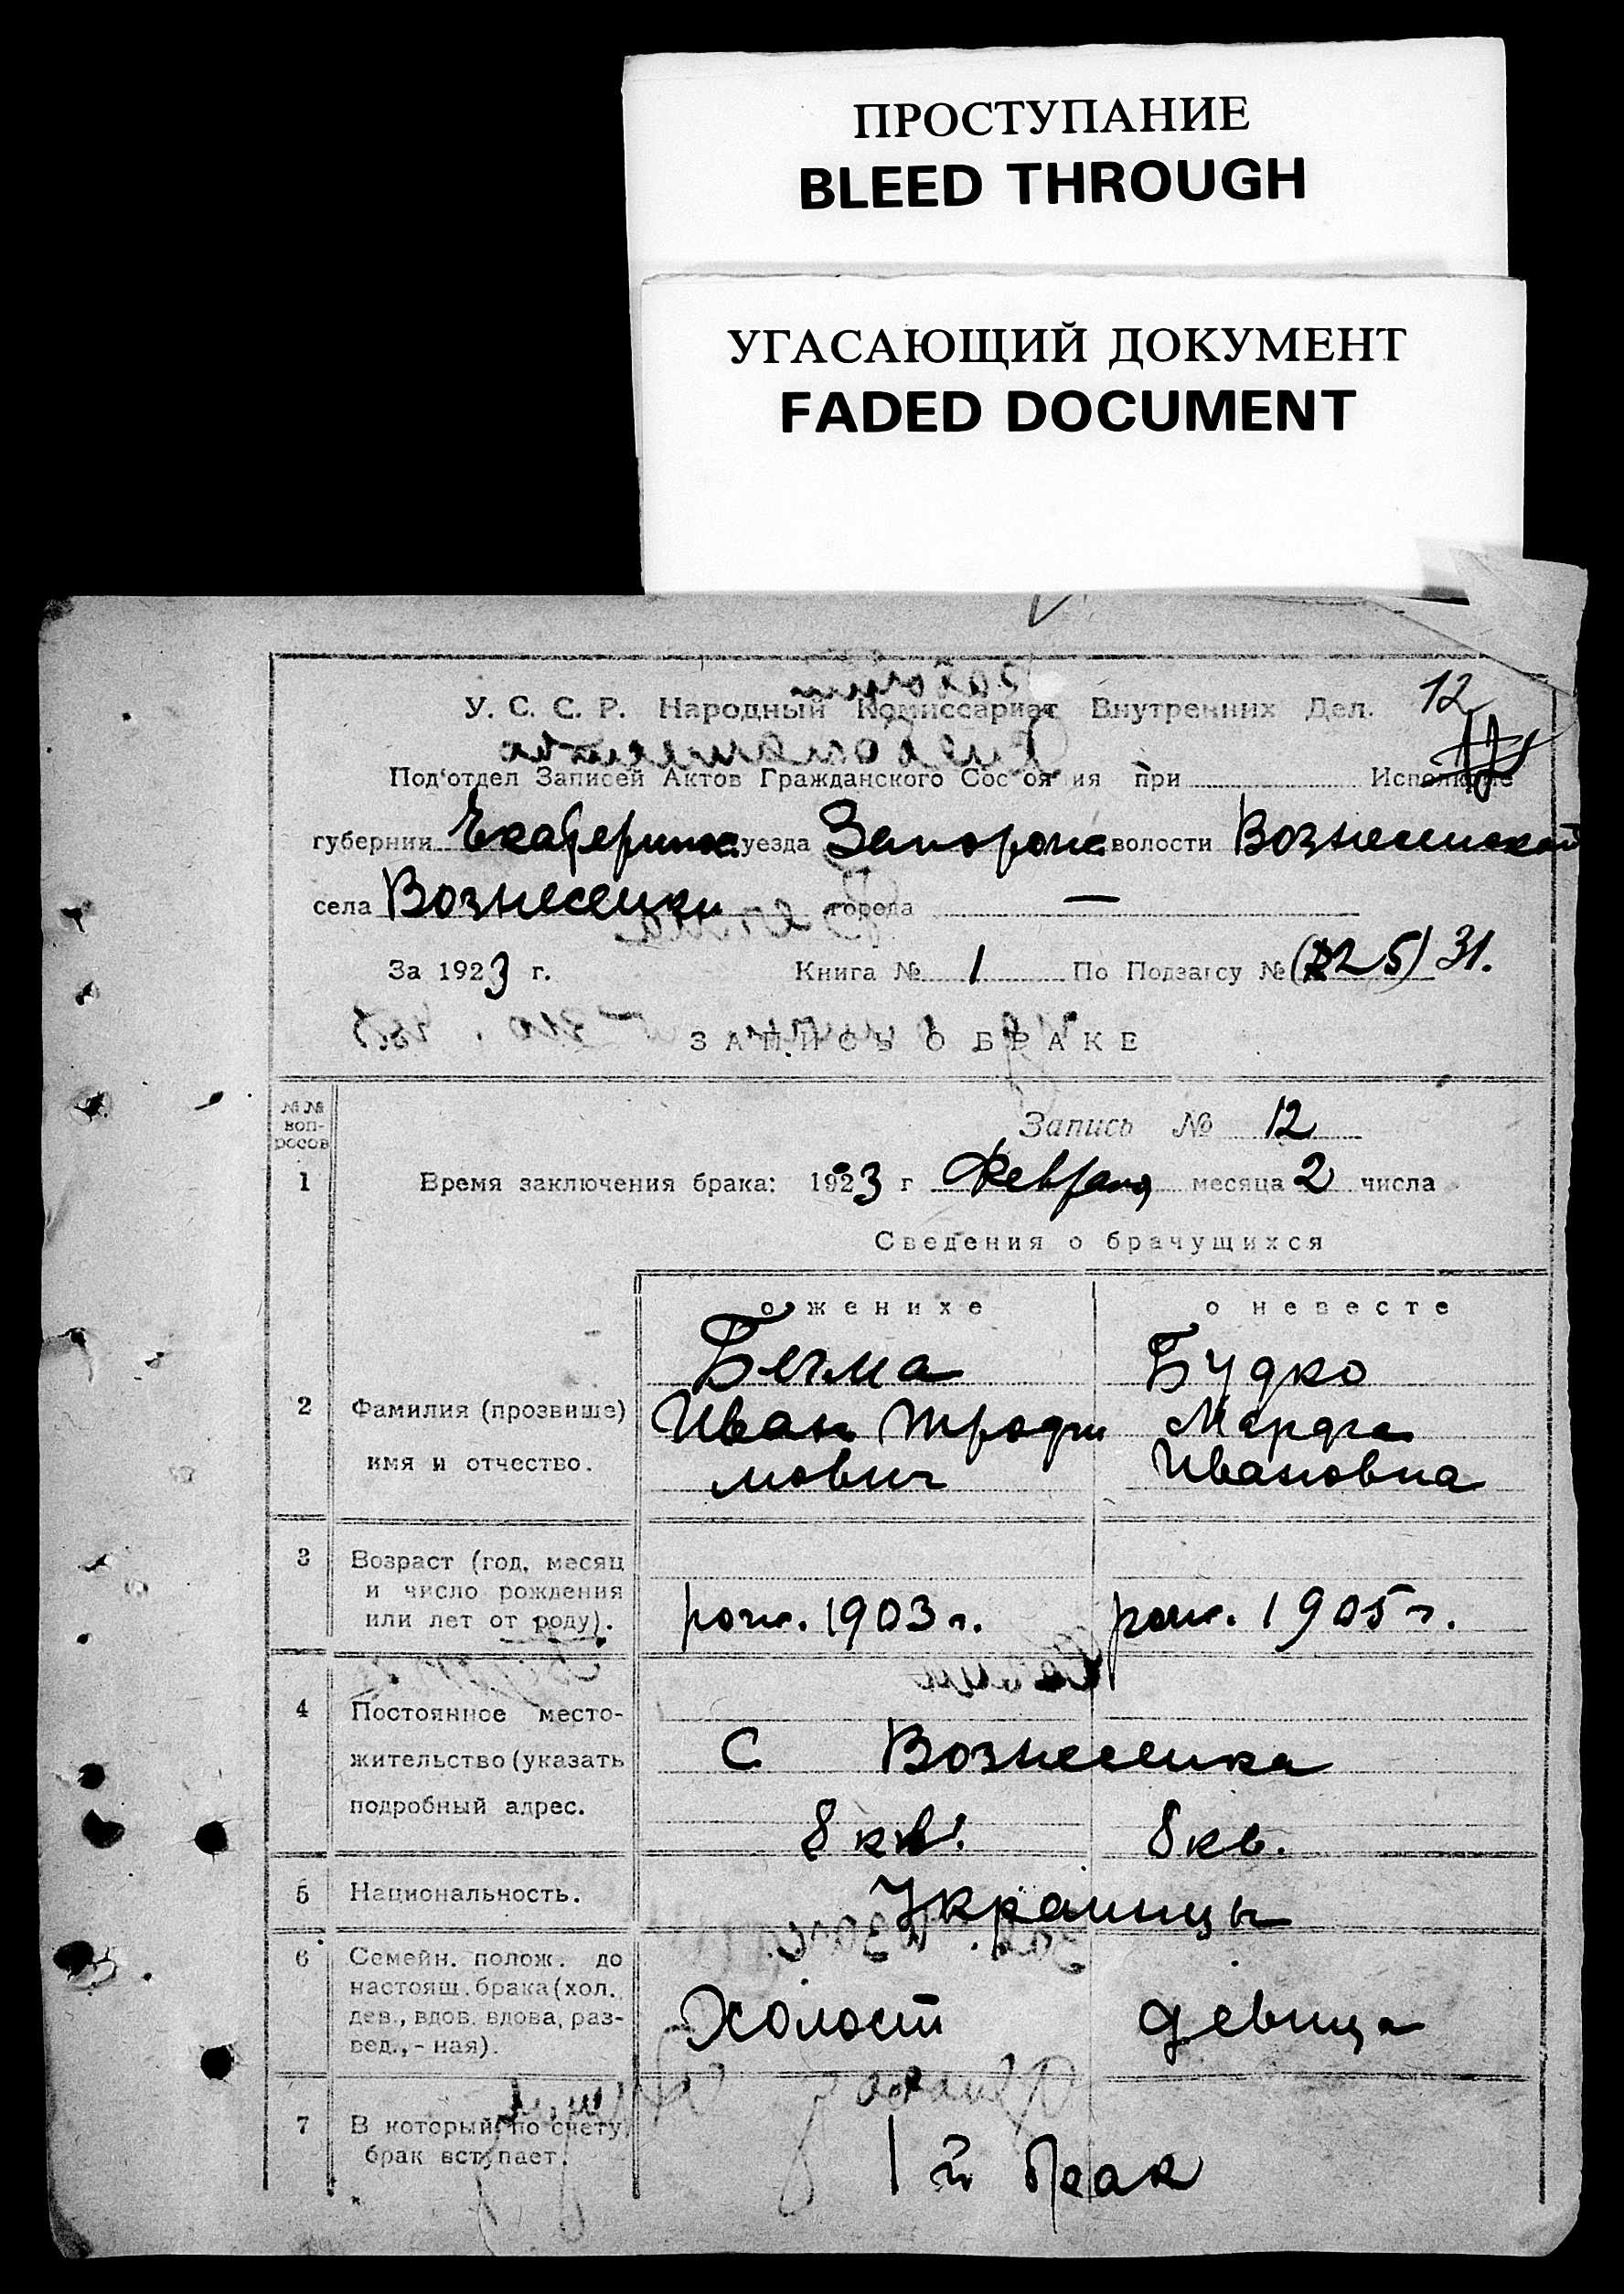 ПРОСТУПАНИЕ
BLEED THROUGH
УГАСАЮЩИЙ ДОКУМЕНТ
FADED DOCUMENT
12
У. С. С. Р. Народный Комиссариат Внутренних Дел.
Под'отдел Записей Актов Гражданского Состояния при Исполкоме
губернии Екатеринос уезда Запорож волости Вознесенской
села Вознесенки города —
За 1923 г. Книга № 1 По Подзагсу № 31.
ЗАПИСЬ О БРАКЕ
№№ воп-росов
Запись № 12
1 Время заключения брака: 1923 г Февраля месяца 2 числа
Сведения о брачущихся
о женихе о невесте
Бечма Будко
2 Фамилия (прозвище) Иван Трофи Марфа
имя и отчество. мович Ивановна
3 Возраст (год, месяц
и число рождения
или лет от роду). рож. 1903 г. рож. 1905 г.
4 Постоянное место-
жительство (указать С Вознесенка
подробный адрес. 8 кв. 8 кв.
5 Национальность. Украинцы
6 Семейн. полож. до
настоящ. брака (хол.,
дев., вдов. вдова, раз- Холост девица
вед., - ная).
7 В который по счету
брак вступает. 1 й брак